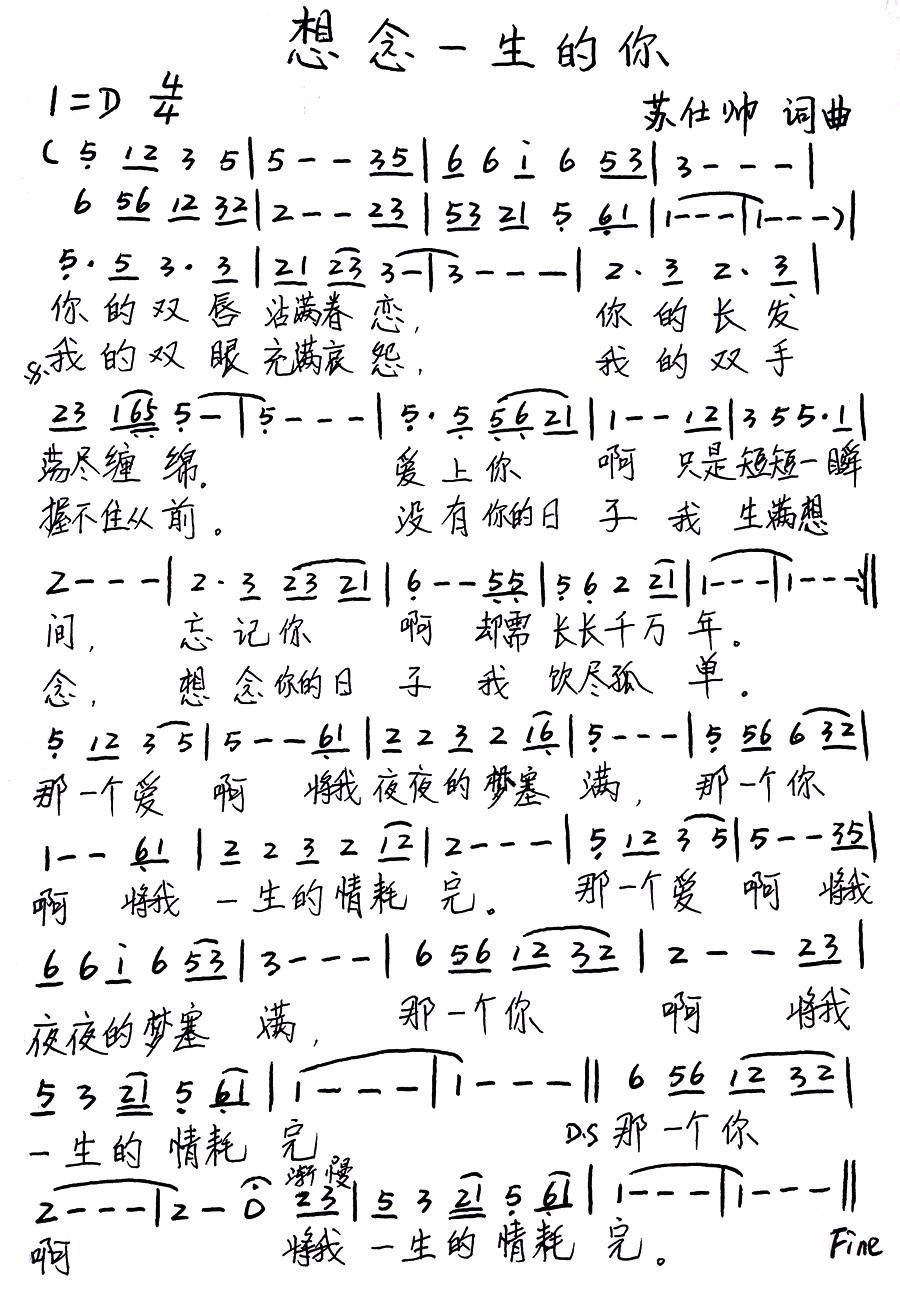 想念一生的你
1=D 4/4
苏仕帅 词曲
( 5 12 3 5 | 5 - - 35 | 6 6 i 6 53 | 3 - - - |
6 56 12 32 | 2 - - 23 | 53 21 5 61 | 1 - - - | 1 - - - ) |
5· 5 3· 3 | 21 23 3 - | 3 - - - | 2· 3 2· 3 |
你的双唇沾满眷恋, 你的长发
我的双眼充满哀怨, 我的双手
23 165 5 - | 5 - - - | 5· 5 56 21 | 1 - - 12 | 3 5 5· 1 |
荡尽缠绵. 爱上你 啊 只是短短一瞬
握不住从前。 没有你的日子我 生满想
2 - - - | 2· 3 23 21 | 6 - - 55 | 5 6 2 21 | 1 - - - | 1 - - - :||
间, 忘记你 啊 却需长长千万年。
念, 想念你的日子我 饮尽孤单.
5 12 3 5 | 5 - - 61 | 2 2 3 2 16 | 5 - - - | 5 56 6 32 |
那一个爱 啊 将我夜夜的梦塞满, 那一个你
1 - - 61 | 2 2 3 2 12 | 2 - - - | 5 12 3 5 | 5 - - 35 |
啊 将我一生的情耗完。 那一个爱 啊 将我
6 6 i 6 53 | 3 - - - | 6 56 12 32 | 2 - - 23 |
夜夜的梦塞满, 那一个你 啊 将我
5 3 21 5 61 | 1 - - - | 1 - - - || 6 56 12 32 |
一生的情耗完 D.S 那一个你
渐慢
2 - - - | 2 - 0 23 | 5 3 21 5 61 | 1 - - - | 1 - - - ||
啊 将我一生的情耗完。 Fine